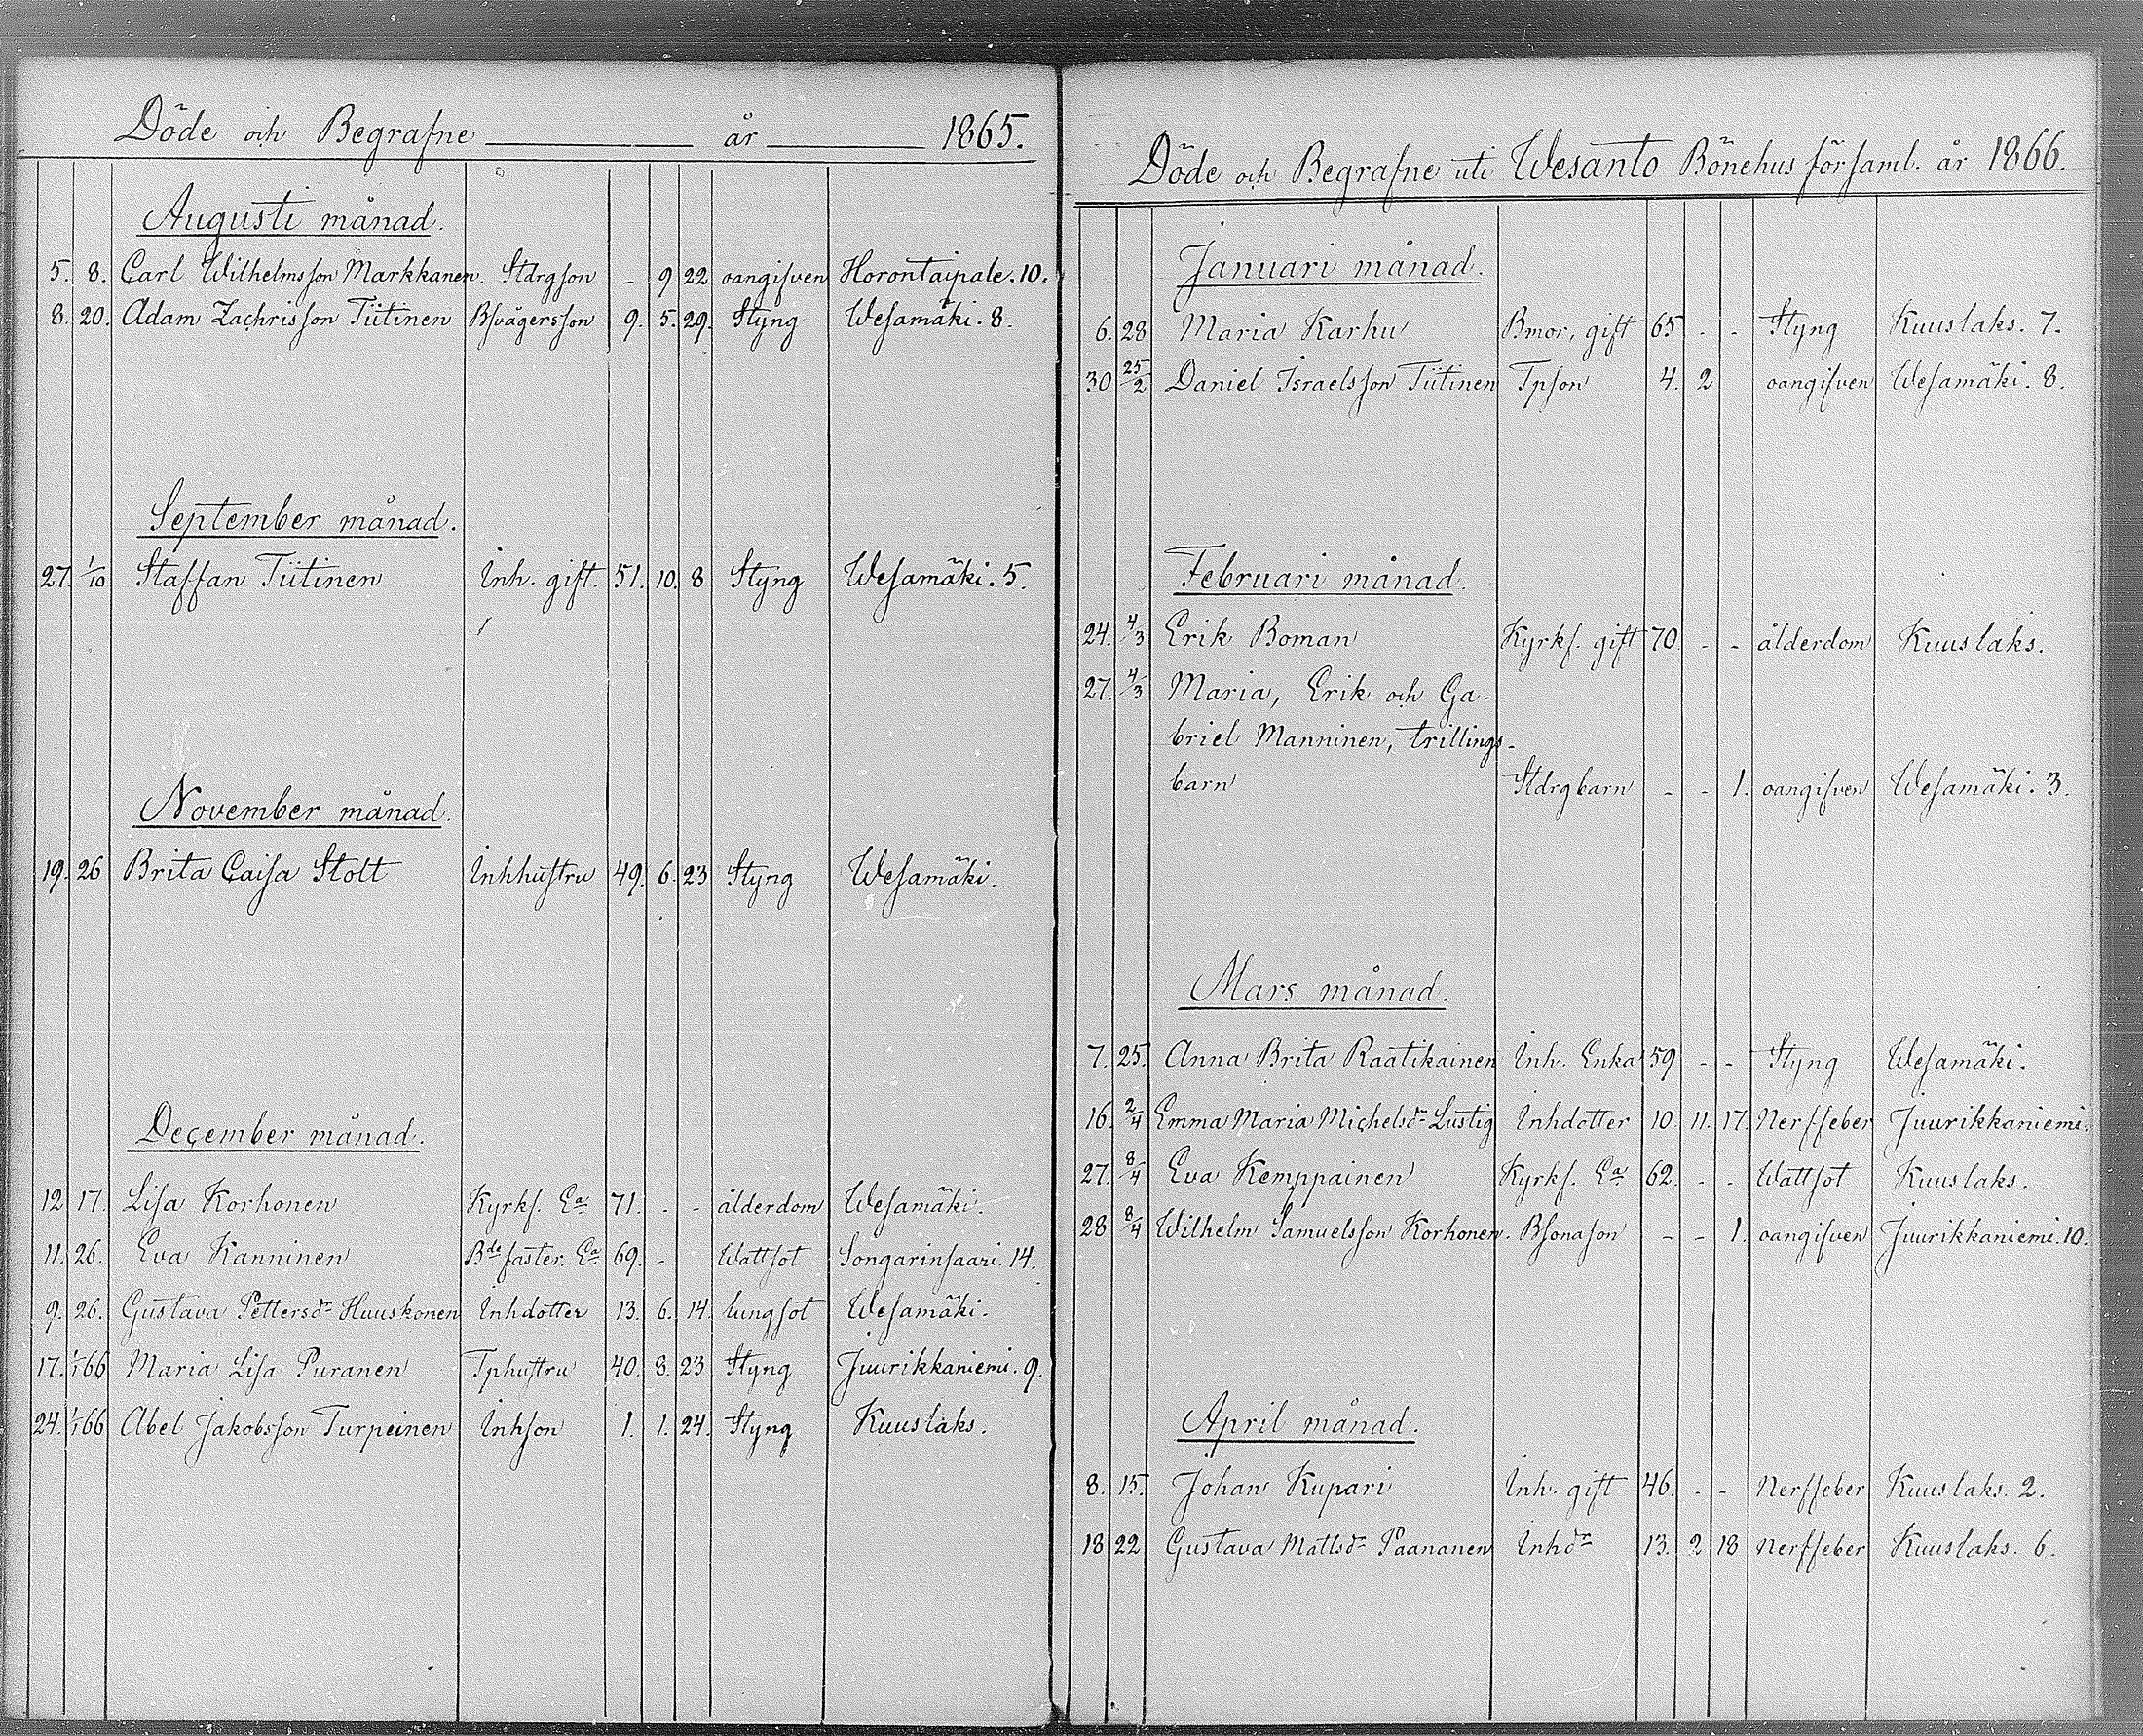 Döde och Begrafne år 1865.
Augusti månad.
5. 8. Carl Wilhelmsson Markkanen. Stdrgson - 9. 22 oangifven Horontaipale. 10.
8. 20. Adam Zachrisson Tiitinen Bsvägersson 9. 5. 29. Styng Wesamäki. 8.
September månad.
27. 1/10 Staffan Tiitinen Inh. gift. 51. 10. 8 Styng Wesamäki. 5.
November månad.
19. 26 Brita Caisa Stolt Inhhustru 49. 6. 23 Styng Wesamäki.
December månad.
12 17. Lisa Korhonen Kyrkf. Ea 71. - - ålderdom Wesamäki.
11. 26. Eva Kanninen Bde faster. Ea 69. - Wattsot Songarinsaari. 14.
9. 26. Gustava Pettersdr Huuskonen Inhdotter 13. 6. 14. lungsot Wesamäki.
17. 1/1 66 Maria Lisa Puranen Tphustru 40. 8. 23 Styng Juurikkaniemi. 9.
24. 1/1 66 Abel Jakobsson Turpeinen Inhson 1. 1. 24. Styng Kuuslaks.
Döde och Begrafne uti Wesanto Bönehus församl. år 1866.
Januari månad.
6. 28 Maria Karhu Bmor, gift 65 - - Styng Kuuslaks. 7.
30 25/2 Daniel Israelsson Tiitinen Tpson 4. 2 oangifven Wesamäki. 8.
Februari månad.
24. 4/3 Erik Boman Kyrkf. gift 70. - - ålderdom Kuuslaks.
27. 4/3 Maria, Erik och Ga-
briel Manninen, trillings-
barn Stdrgbarn - - 1. oangifven Wesamäki. 3.
Mars månad.
7. 25. Anna Brita Raatikainen Inh. Enka 59 - - Styng Wesamäki.
16. 2/4 Emma Maria Michelsdr Lustig Inhdotter 10. 11. 17. Nerffeber Juurikkaniemi.
27. 8/4 Eva Kemppainen Kyrkf. Ea 62. - - Wattsot Kuuslaks.
28 8/4 Wilhelm Samuelsson Korhonen. Bsonason - - 1. oangifven Juurikkaniemi. 10.
April månad.
8. 15. Johan Kupari Inh. gift 46. - - Nerffeber Kuuslaks. 2.
18 22 Gustava Mattsdr Paananen Inhdr 13. 2 18 Nerffeber Kuuslaks. 6.